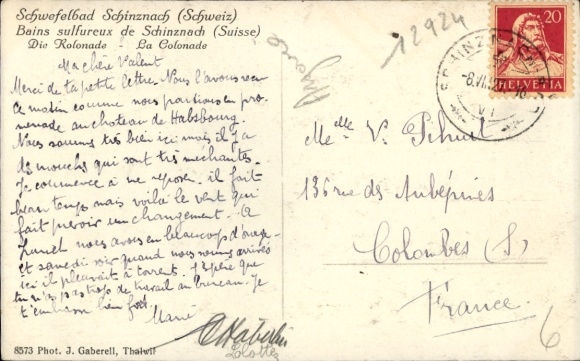 Schwefelbad Schinznach (Schweiz)
Bains sulfureux de Schinznach (Suisse)
Die Kolonade - La Colonade
Ma chère Valent
Merci de ta petite lettre. Nous l'avons reçu
ce matin comme nous partions en pro
menade au chateau de Habsbourg.
Nous sommes très bien ici mais il y a
des mouches qui sont très méchantes.
Je commence à me reposer. il fait
beau temps mais voilà le vent qui
fait prévoir un changement. A
nous avons eu beaucoup d'orage
et samedi soir quand nous sommes arrivés
ici il pleuvait à torrent. J'espère que
tu n'as pas trop de travail au bureau. Je
t'embrasse bien fort
8573 Phot. J. Gaberell, Thalwil
12924
20
HELVETIA
Melle V.
136 rue des Aubépines
Colombes (S)
France
6